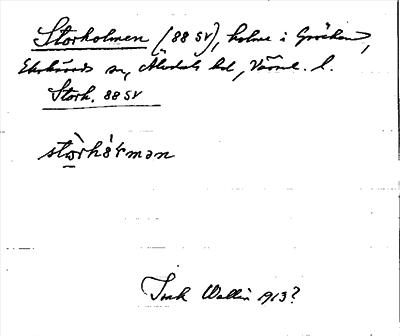 Storholmen (88 SV), holme i Gräsken,
Ekshärads sn, Älvdals hd, Värml. l.
Stork. 88 SV
stòrhåĺmən
Wallin 1913?